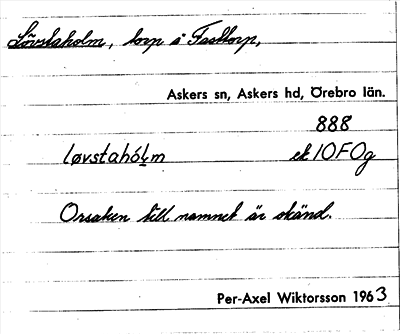 Lövstaholm, torp i Fasttorp,
Askers sn, Askers hd, Örebro län.
888
løvstahóḷm ek 10FOg
Orsaken till namnet är okänd.
Per-Axel Wiktorsson 1963